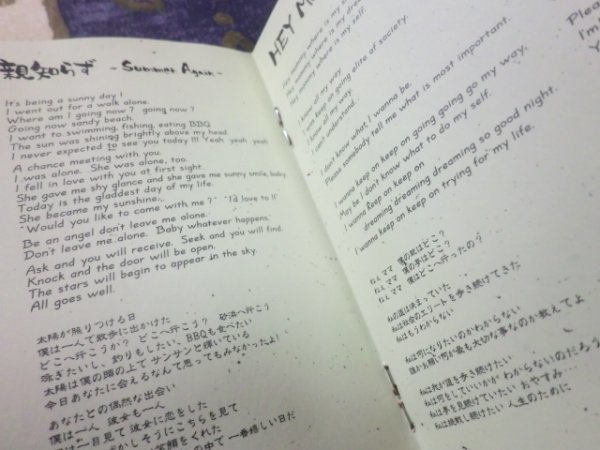 親知らず - Summer Again -
It's being a sunny day!
I went out for a walk alone.
Where am I going now? going now?
Going now sandy beach.
I want to swimming, fishing, eating BBQ
The sun was shining brightly above my head.
I never expected to see you today!!! Yeah yeah yeah
A chance meeting with you.
I was alone. She was alone, too.
I fell in love with you at first sight.
She gave me shy glance and she gave me sunny smile, baby
Today is the gladdest day of my life.
She became my sunshine,.
"Would you like to come with me?" "I'd love to!!
Be an angel don't leave me alone.
Don't leave me alone. Baby whatever happens.
Ask and you will receive. Seek and you will find.
Knock and the door will be open.
The stars will begin to appear in the sky.
All goes well.
太陽が照りつける日
僕は一人で散歩に出かけた
どこへ行こうか? どこへ行こう? 砂浜へ行こう
泳ぎたいし、釣りもしたい、BBQも食べたい
太陽は僕の頭の上で サンサンと輝いている
今日あなたに会えるなんて思ってもみなかったよ!
あなたとの偶然な出会い
僕は一人 彼女も一人
僕は一目見て彼女に恋をした
かしそうにこちらを見て
笑顔をくれた
の中で 一番嬉しい日だ
HEY M
Hey mommy where is my
Hey mommy where is my dre
Hey mommy where is my self.
I know all my way
I was keep on going elite of society.
I know all my way.
I can't understand.
I don't know what I wanna be.
Please somebody tell me what is most important.
I wanna keep on keep on going going go my way.
May be I don't know what to do my self.
I wanna keep on keep on
dreaming dreaming dreaming so good night.
I wanna keep on keep on trying for my life.
ねぇ ママ 僕の靴はどこ?
ねぇ ママ 僕の夢はどこ?
ねぇ ママ 僕はどこへ行ったの?
私の道は決まっていた
私は社会のエリートを歩き続けてきた
私はもうわからない
私は何になりたいのかわからない
誰かお願い何が最も大切な事なのか教えてよ
私は我が道を歩き続けたい
私は何をしていいかがわからないのだろう
私は夢を見続けていたい おやすみ…
私は挑戦し続けたい 人生のために
Plea
I'm